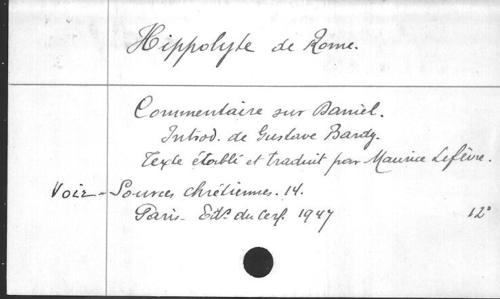 Hippolyte de Rome.
Commentaire sur Daniel.
Introd. de Gustave Bardy.
Texte établi et traduit par Maurice Lefèvre.
Voir - Sources chrétiennes. 14.
Paris - Edⁿˢ du Cerf. 1947 12°